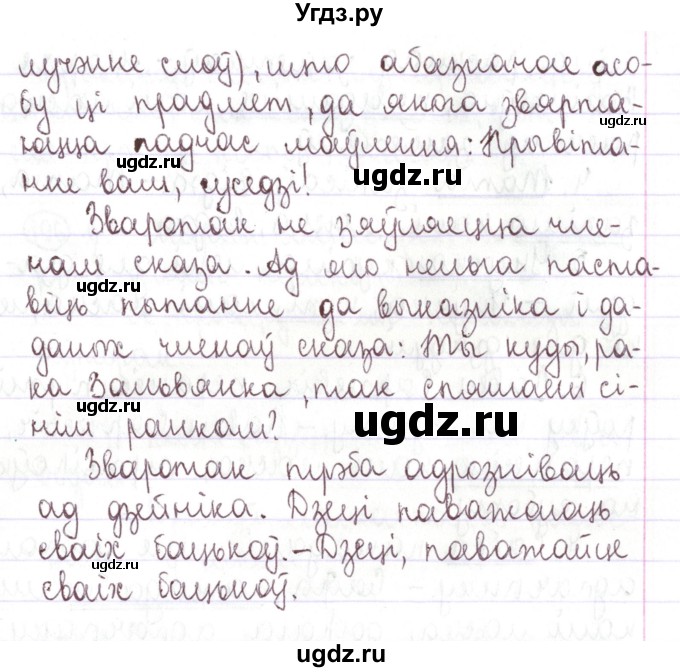 Угдз.ру
лучэнне слоў), што абазначае асо-
бу ці прадмет, да якога звярта-
юцца падчас маўлення: Прывіта-
нне вам, суседзі!
Зваротак не з'яўляецца чле-
нам сказа. Ад яго нельга паста-
віць пытанне да выказніка і да-
даных членаў сказа: Ты куды, ра-
ка Зальвянка, так спяшаеш сі-
нім ранкам?
Зваротак трэба адрозніваць
ад дзейніка. Дзеці паважаюць
сваіх бацькоў. – Дзеці, паважайце
сваіх бацькоў.
ugdz.ru
ugdz.ru
ugdz.ru
ugdz.ru
ugdz.ru
ugdz.ru
ugdz.ru
ugdz.ru
ugdz.ru
ugdz.ru